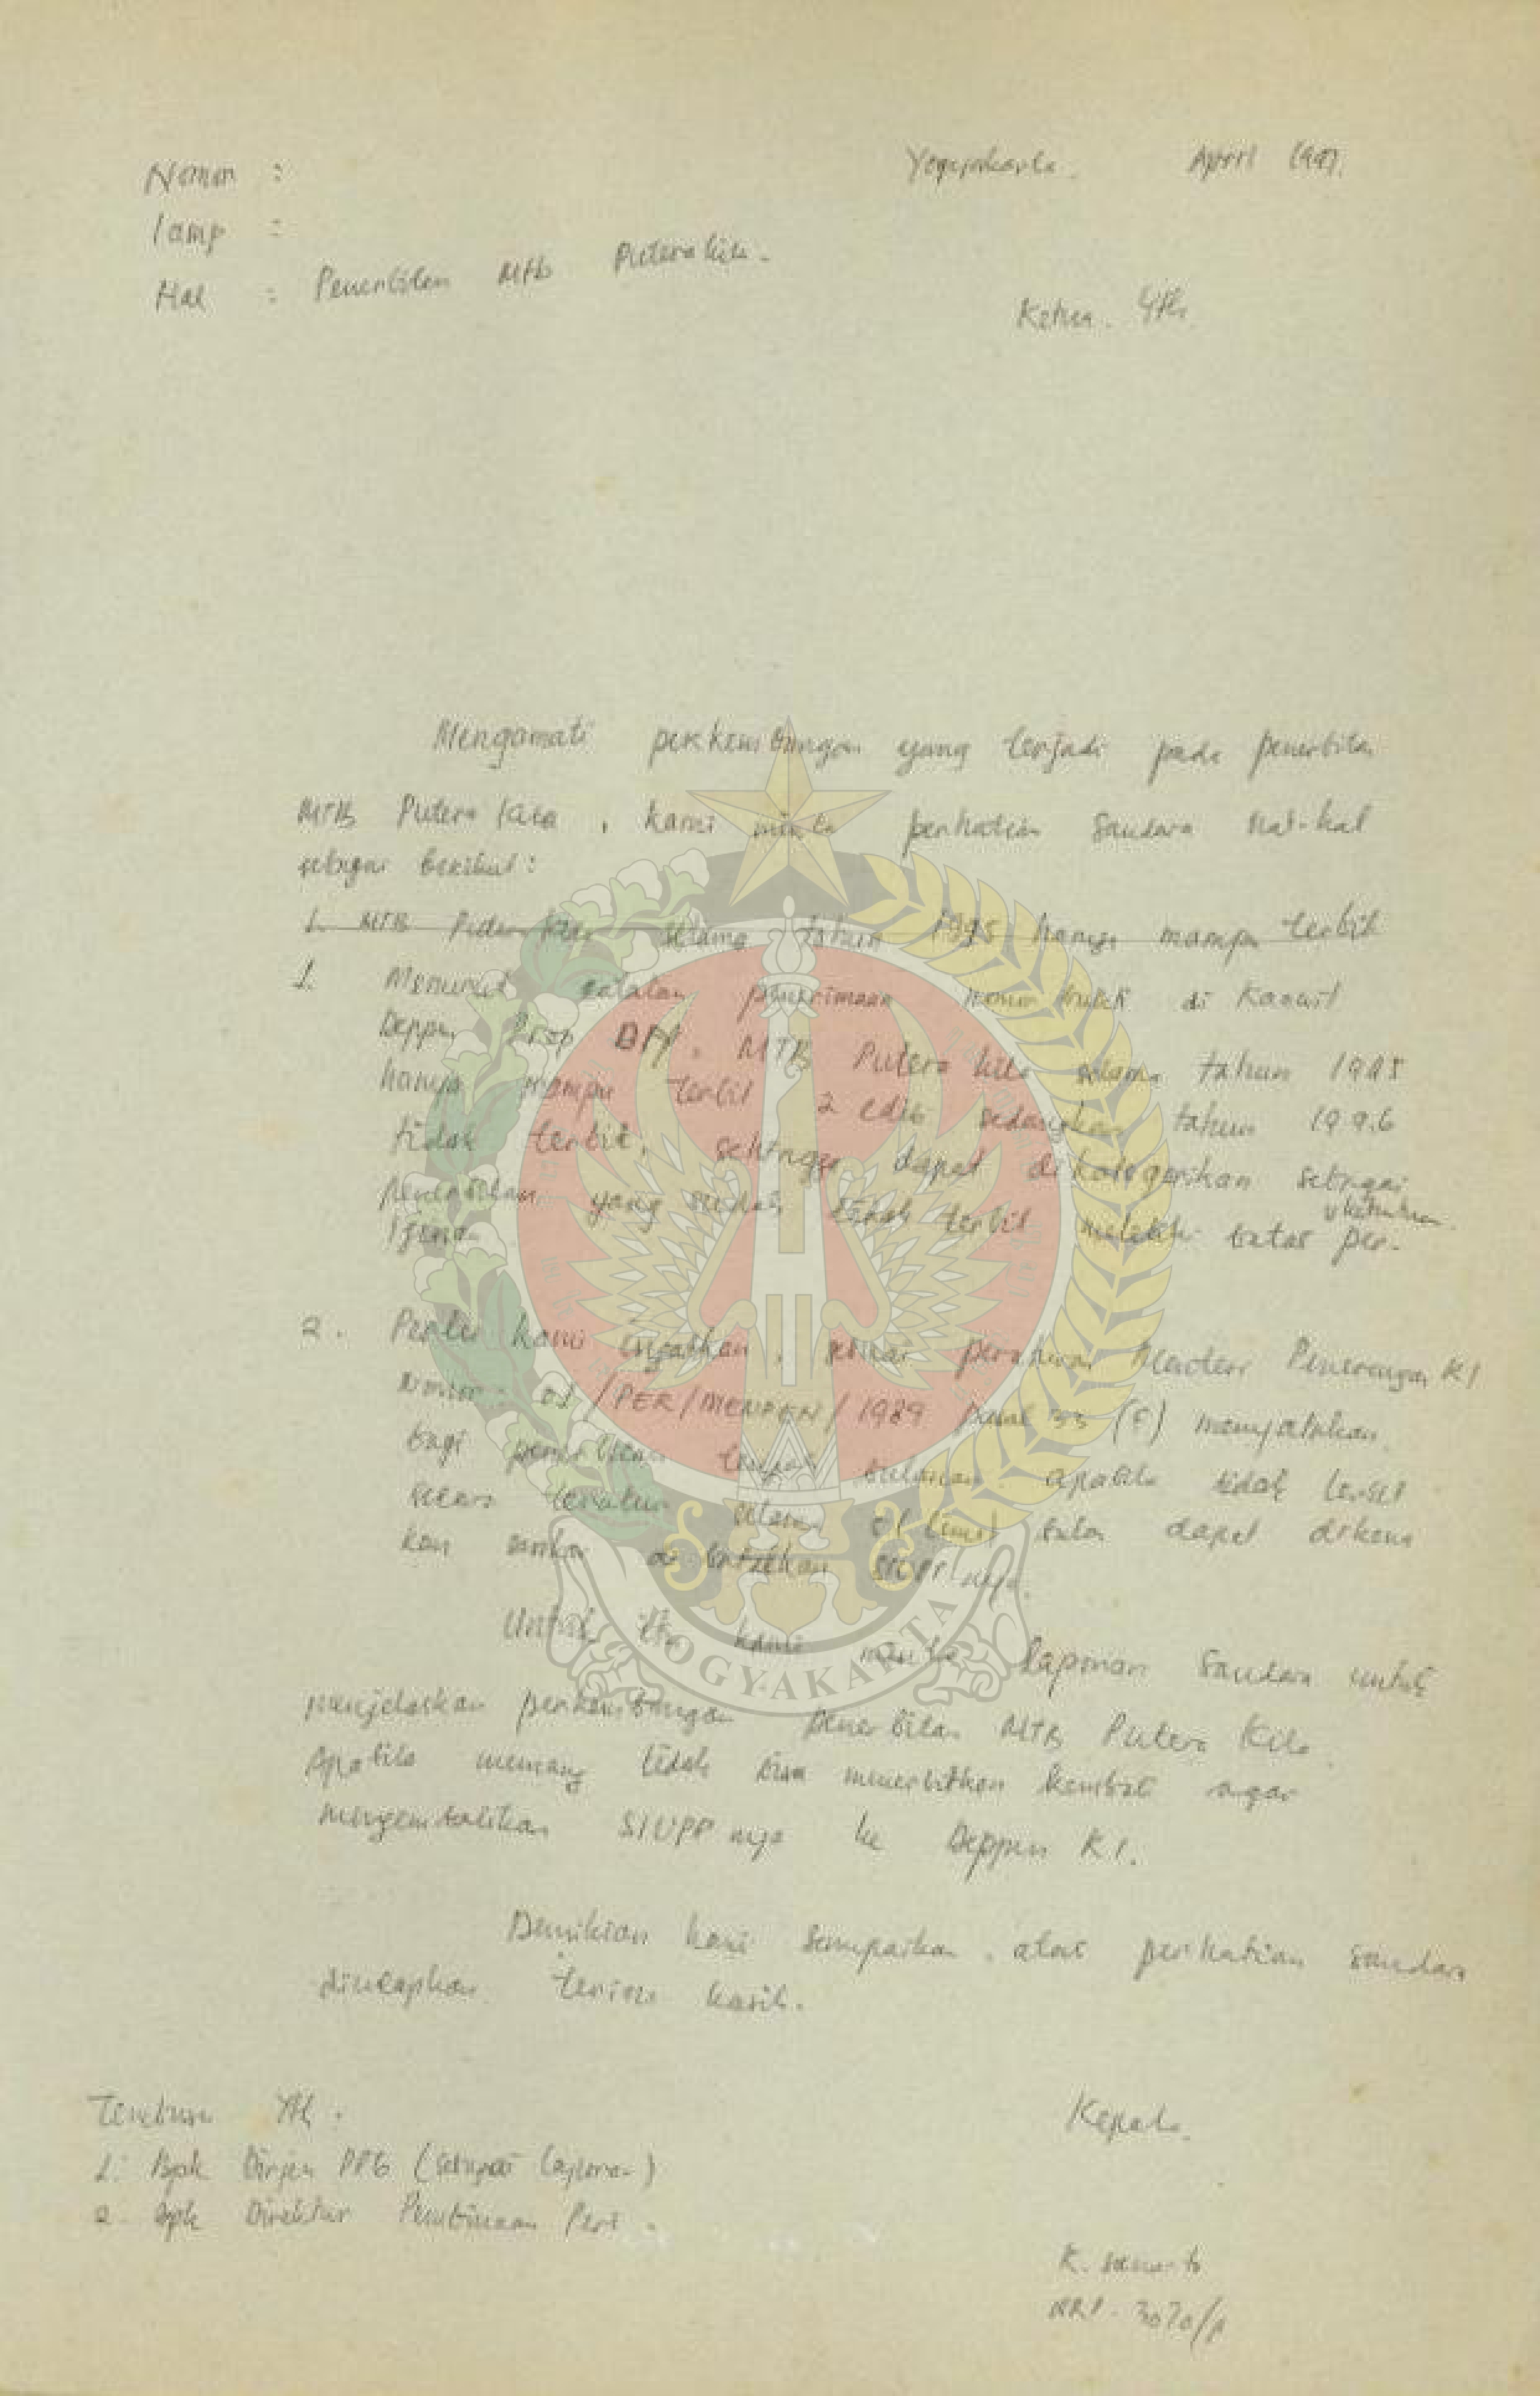 Nomor :
Yogyakarta. April 1997.
Lamp :
Hal : Penerbitan MTB Putera Kita.
Ketua. Yth
Mengamati perkembangan yang terjadi pada penerbitan
MTB Putera Kita, kami minta perhatian Saudara hal-hal
sebagai berikut :
1. MTB Putera Kita selama tahun 1995 hanya mampu terbit
1. Menurut catatan penerimaan nomor bukti di Kanwil
Deppen Prop DIY. MTB Putera Kita selama tahun 1995
hanya mampu terbit 2 edisi sedangkan tahun 1996
tidak terbit, sehingga dapat dikategorikan sebagai
penerbitan yang sudah tidak terbit melebihi batas
ketentuan per-
ijinan
2. Perlu kami ingatkan, sesuai peraturan Menteri Penerangan RI
Nomor 01/PER/MENPEN/1989 pasal 33 (c) menyatakan
bagi penerbitan tengah bulanan apabila tidak terbit
secara teratur selama 6 (enam) bulan dapat dikena
kan sanksi dibatalkan SIUPP nya.
Untuk itu kami minta laporan Saudara untuk
menjelaskan perkembangan penerbitan MTB Putera Kita.
Apabila memang tidak bisa menerbitkan kembali agar
mengembalikan SIUPP nya ke Deppen RI.
Demikian kami sampaikan, atas perhatian Saudara
diucapkan terima kasih.
Tembusan Yth.
1. Bpk Dirjen PPG (sebagai laporan)
2. Bpk Direktur Pembinaan Pers.
Kepala
R. Sunarto
NRP. 3070/P
YOGYAKARTA